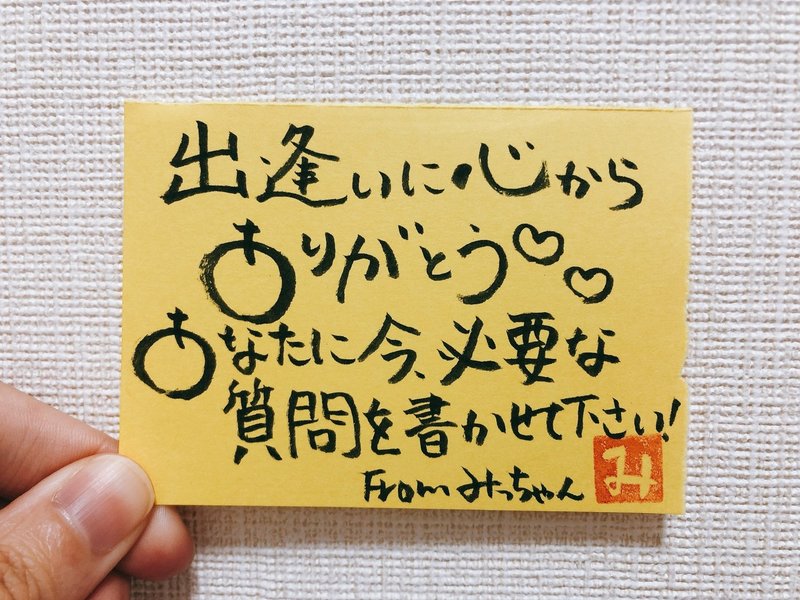 出逢いに心から
ありがとう♡♡
あなたに今、必要な
質問を書かせて下さい!
From みっちゃん
み